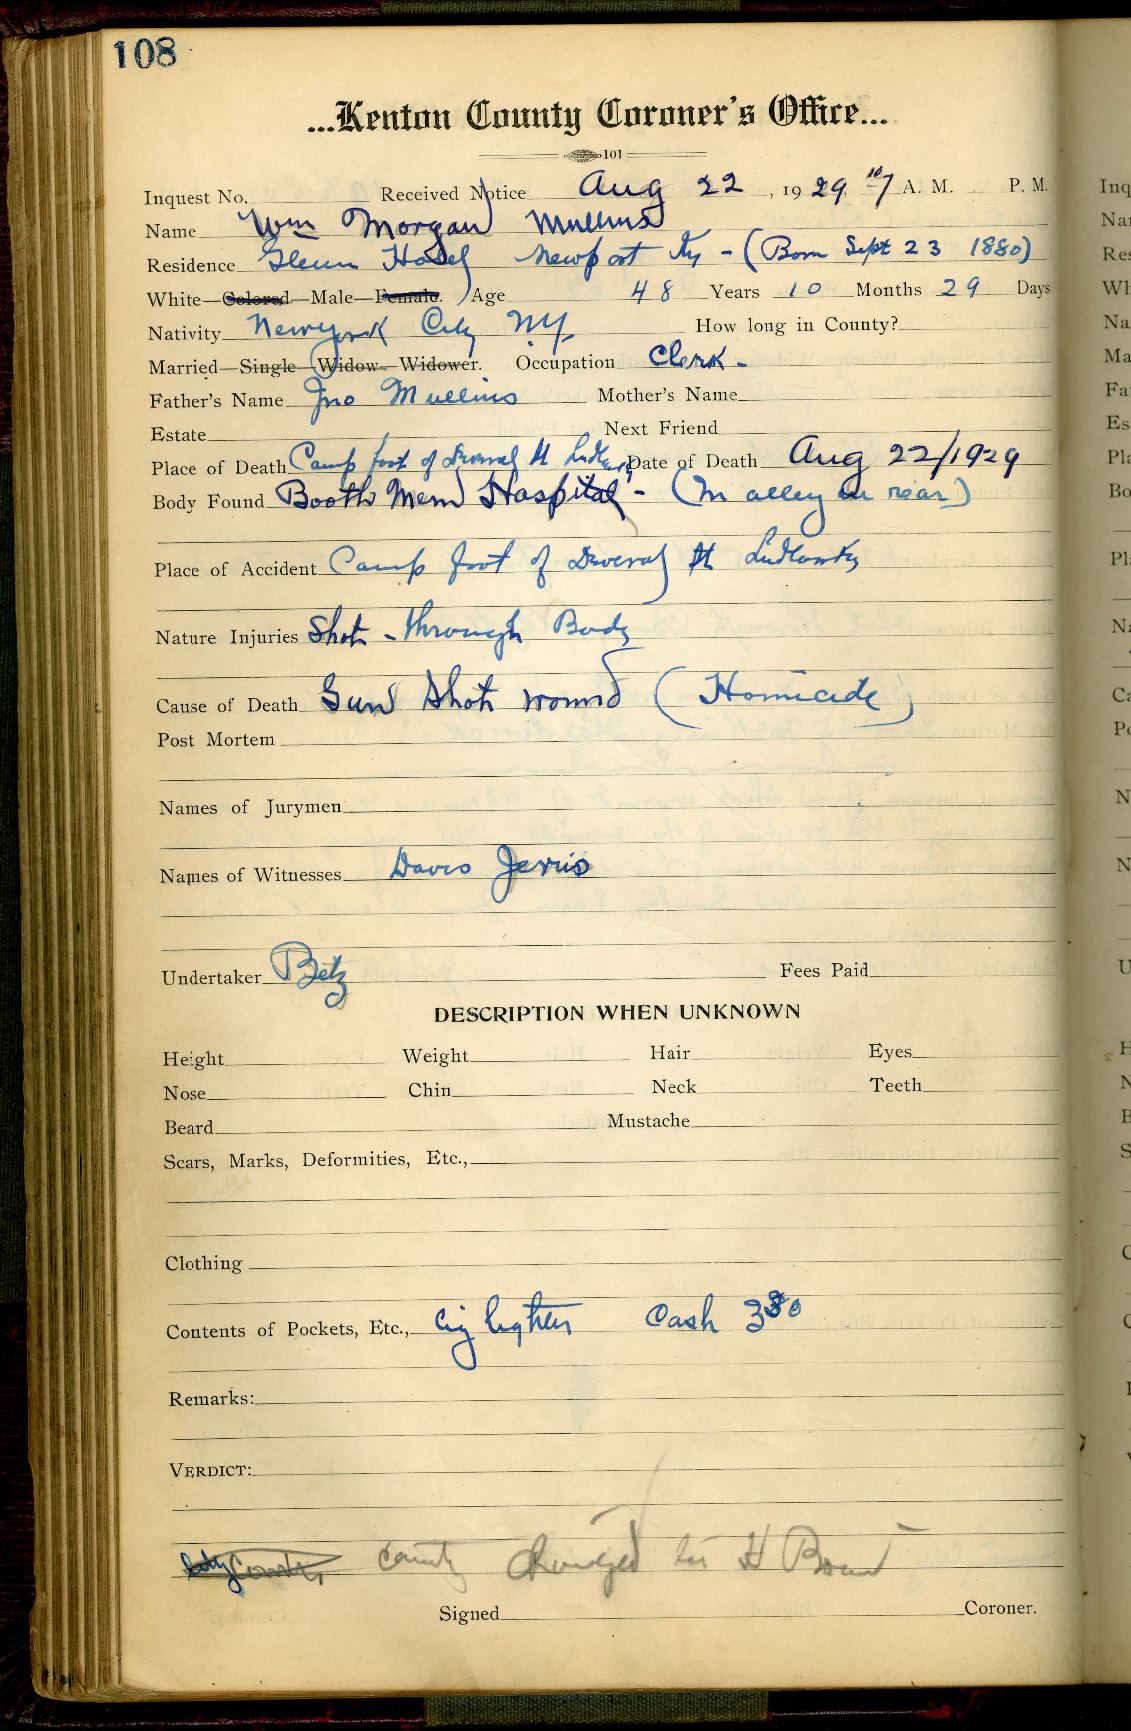 108
...Kenton County Coroner's Office...
101
Inquest No. Received Notice Aug 22, 1929. 10/7 A. M. P. M.
Name Wm Morgan Mullins
Residence Glenn Hotel Newport Ky - (Born Sept 23 1880)
White—Colored—Male—Female. Age 48 Years 10 Months 29 Days
Nativity New York City NY. How long in County?
Married—Single—Widow—Widower. Occupation Clerk -
Father's Name Jno Mullins Mother's Name
Estate Next Friend
Place of Death Camp foot of St Ludlow Date of Death Aug 22/1929
Body Found Booth Mem Hospital - (In alley in rear)
Place of Accident Camp foot of St Ludlow Ky
Nature Injuries Shot - through Body
Cause of Death Gun Shot wound (Homicide)
Post Mortem
Names of Jurymen
Names of Witnesses Davis Jervis
Undertaker Betz Fees Paid
DESCRIPTION WHEN UNKNOWN
Height Weight Hair Eyes
Nose Chin Neck Teeth
Beard Mustache
Scars, Marks, Deformities, Etc.,
Clothing
Contents of Pockets, Etc., Cig lighter Cash 3 80
Remarks:
VERDICT:
County Changed H
Signed Coroner.
Inq
Nar
Res
Wh
Na
Ma
Fa
Es
Pla
Bo
Pl
Na
Ca
Po
N
N
U
H
N
B
S
C
C